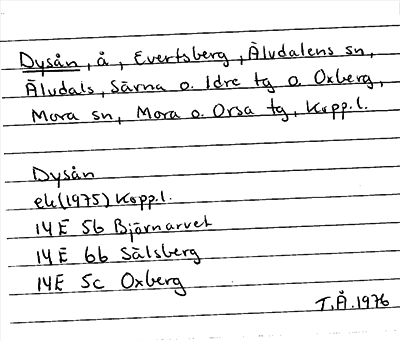 Dysån, å, Evertsberg, Älvdalens sn,
Älvdals, Särna o. Idre tg o. Oxberg,
Mora sn, Mora o. Orsa tg, Kopp.l.
Dysån
ek(1975) Kopp.l.
14E 5b Bjärnarvet
14E 6b Sälsberg
14E 5c Oxberg
T.Å.1976